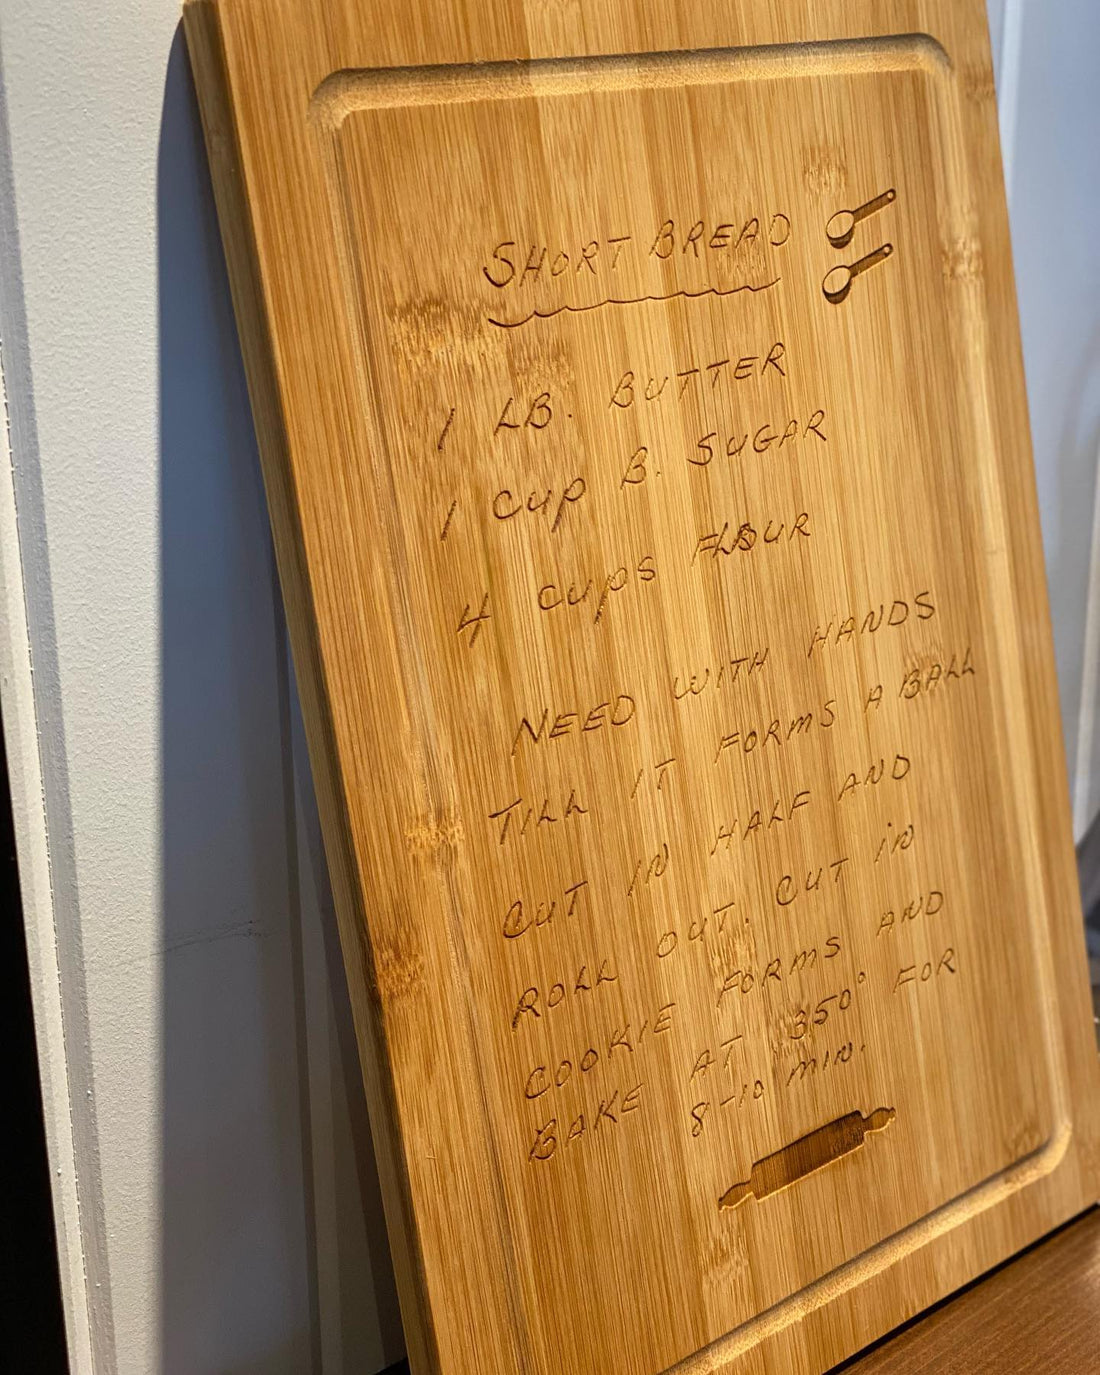 SHORT BREAD
1 LB. BUTTER
1 CUP B. SUGAR
4 CUPS FLOUR
NEED WITH HANDS
TILL IT FORMS A BALL
CUT IN HALF AND
ROLL OUT. CUT IN
COOKIE FORMS AND
BAKE AT 350° FOR
8-10 MIN.